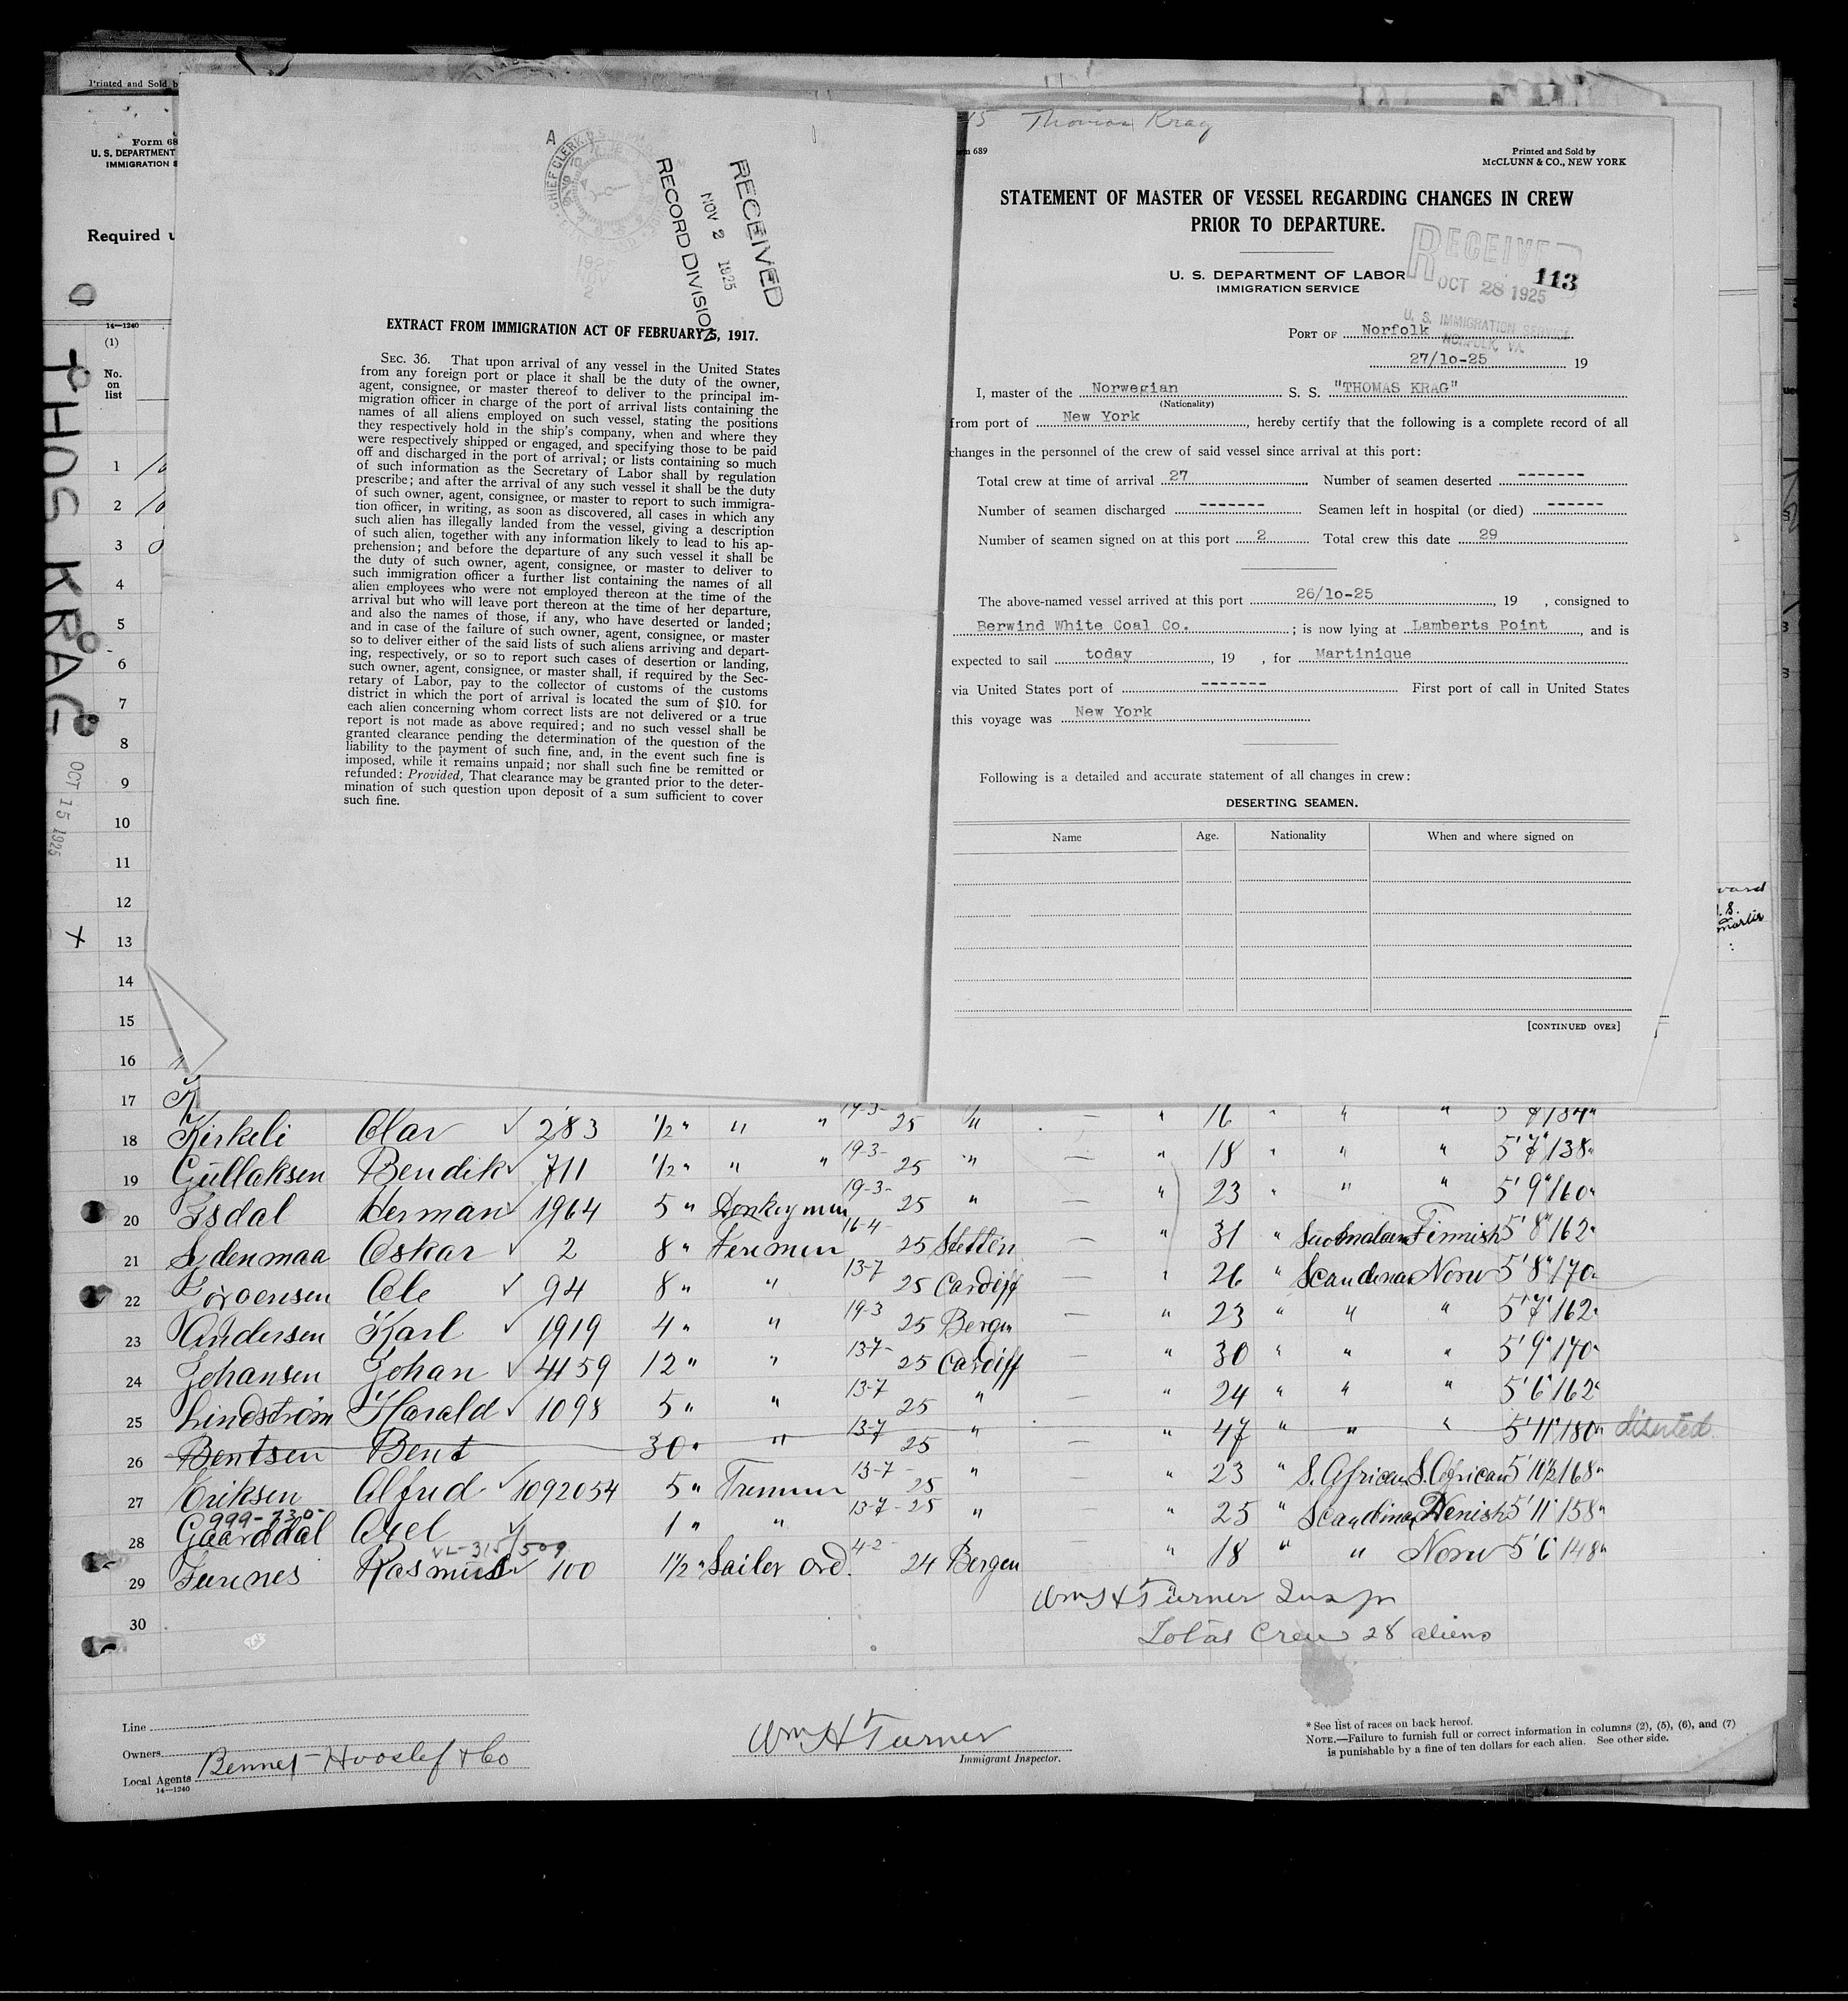 Printed and Sold b
Form 68
U. S. DEPARTMENT
IMMIGRATION S
Required u
14—1240
(1)
No.
on
list
THOS KRAG
OCT 15 1925
A
CHIEF CLERK
RECEIVED
NOV 2 1925
RECORD DIVISION
EXTRACT FROM IMMIGRATION ACT OF FEBRUARY 5, 1917.
SEC. 36. That upon arrival of any vessel in the United States
from any foreign port or place it shall be the duty of the owner,
agent, consignee, or master thereof to deliver to the principal im-
migration officer in charge of the port of arrival lists containing the
names of all aliens employed on such vessel, stating the positions
they respectively hold in the ship's company, when and where they
were respectively shipped or engaged, and specifying those to be paid
off and discharged in the port of arrival; or lists containing so much
of such information as the Secretary of Labor shall by regulation
prescribe; and after the arrival of any such vessel it shall be the duty
of such owner, agent, consignee, or master to report to such immigra-
tion officer, in writing, as soon as discovered, all cases in which any
such alien has illegally landed from the vessel, giving a description
of such alien, together with any information likely to lead to his ap-
prehension; and before the departure of any such vessel it shall be
the duty of such owner, agent, consignee, or master to deliver to
such immigration officer a further list containing the names of all
alien employees who were not employed thereon at the time of the
arrival but who will leave port thereon at the time of her departure,
and also the names of those, if any, who have deserted or landed;
and in case of the failure of such owner, agent, consignee, or master
so to deliver either of the said lists of such aliens arriving and depart-
ing, respectively, or so to report such cases of desertion or landing,
such owner, agent, consignee, or master shall, if required by the Sec-
retary of Labor, pay to the collector of customs of the customs
district in which the port of arrival is located the sum of $10. for
each alien concerning whom correct lists are not delivered or a true
report is not made as above required; and no such vessel shall be
granted clearance pending the determination of the question of the
liability to the payment of such fine, and, in the event such fine is
imposed, while it remains unpaid; nor shall such fine be remitted or
refunded: Provided, That clearance may be granted prior to the deter-
mination of such question upon deposit of a sum sufficient to cover
such fine.
15 Thomas Krag
rm 689
Printed and Sold by
McCLUNN & CO., NEW YORK
STATEMENT OF MASTER OF VESSEL REGARDING CHANGES IN CREW
PRIOR TO DEPARTURE.
U. S. DEPARTMENT OF LABOR
IMMIGRATION SERVICE
RECEIVED
113
OCT 28 1925
U. S. IMMIGRATION SERVICE
NORFOLK, VA.
PORT OF Norfolk
27/10-25 19
I, master of the Norwegian S. S. "THOMAS KRAG"
(Nationality)
from port of New York, hereby certify that the following is a complete record of all
changes in the personnel of the crew of said vessel since arrival at this port:
Total crew at time of arrival 27 Number of seamen deserted -------
Number of seamen discharged ------- Seamen left in hospital (or died) ------
Number of seamen signed on at this port 2 Total crew this date 29
The above-named vessel arrived at this port 26/10-25, 19 , consigned to
Berwind White Coal Co. ; is now lying at Lamberts Point, and is
expected to sail today, 19 , for Martinique
via United States port of ------- First port of call in United States
this voyage was New York
Following is a detailed and accurate statement of all changes in crew:
DESERTING SEAMEN.
Name Age. Nationality When and where signed on
[CONTINUED OVER]
1
2
3
4
5
6
7
8
9
10
11
12
13
14
15
16
17
18 Kirkeli Olav ✓ 283 1/2 " " " 19-3-25 " — " 16 " " " 134"
19 Gullaksen Bendik ✓ 711 1/2 " " " 19-3-25 " — " 18 " " " 5' 7" 138"
20 Isdal Herman ✓ 1964 5 " Donkeyman 19-3-25 " — " 23 " " " 5' 9" 160"
21 Oskar ✓ 2 8 " Firemen 16-4-25 Stettin — " 31 " Finnish 5' 8" 162"
22 Jorgensen Ole ✓ 94 8 " " 13-7 25 Cardiff — " 26 " Scandina Norw 5' 8" 170"
23 Andersen Karl ✓ 1919 4 " " 19-3 25 Bergen — " 23 " " " 5' 7" 162"
24 Johansen Johan ✓ 4159 12 " " 13-7-25 Cardiff — " 30 " " " 5' 9" 170"
25 Lindström Harald ✓ 1098 5 " " 13-7 25 " — " 24 " " " 5' 6" 162"
26 Bentsen Bent 30 " " 13-7 25 " — " 47 " " " 5' 11" 180" diserted
27 Eriksen Alfred ✓ 1092054 5 " Trimmer 13-7-25 " — " 23 " S. African S. African 5' 10½ 168"
999-730-
28 Gaarddal Axel ✓ 1 " " 13-7-25 " — " 25 " Scandina Denish 5' 11" 158"
VL-315/509
29 Furnes Rasmus ✓ 100 1½ " Sailor ord. 4-2-24 Bergen — " 18 " " Norw 5' 6" 148"
30
Wm H Turner Inspr
Total Crew 28 aliens
Line
Owners
Local Agents Bennet Hvoslef & Co
14—1240
Wm H Turner
Immigrant Inspector.
* See list of races on back hereof.
NOTE.—Failure to furnish full or correct information in columns (2), (5), (6), and (7)
is punishable by a fine of ten dollars for each alien. See other side.